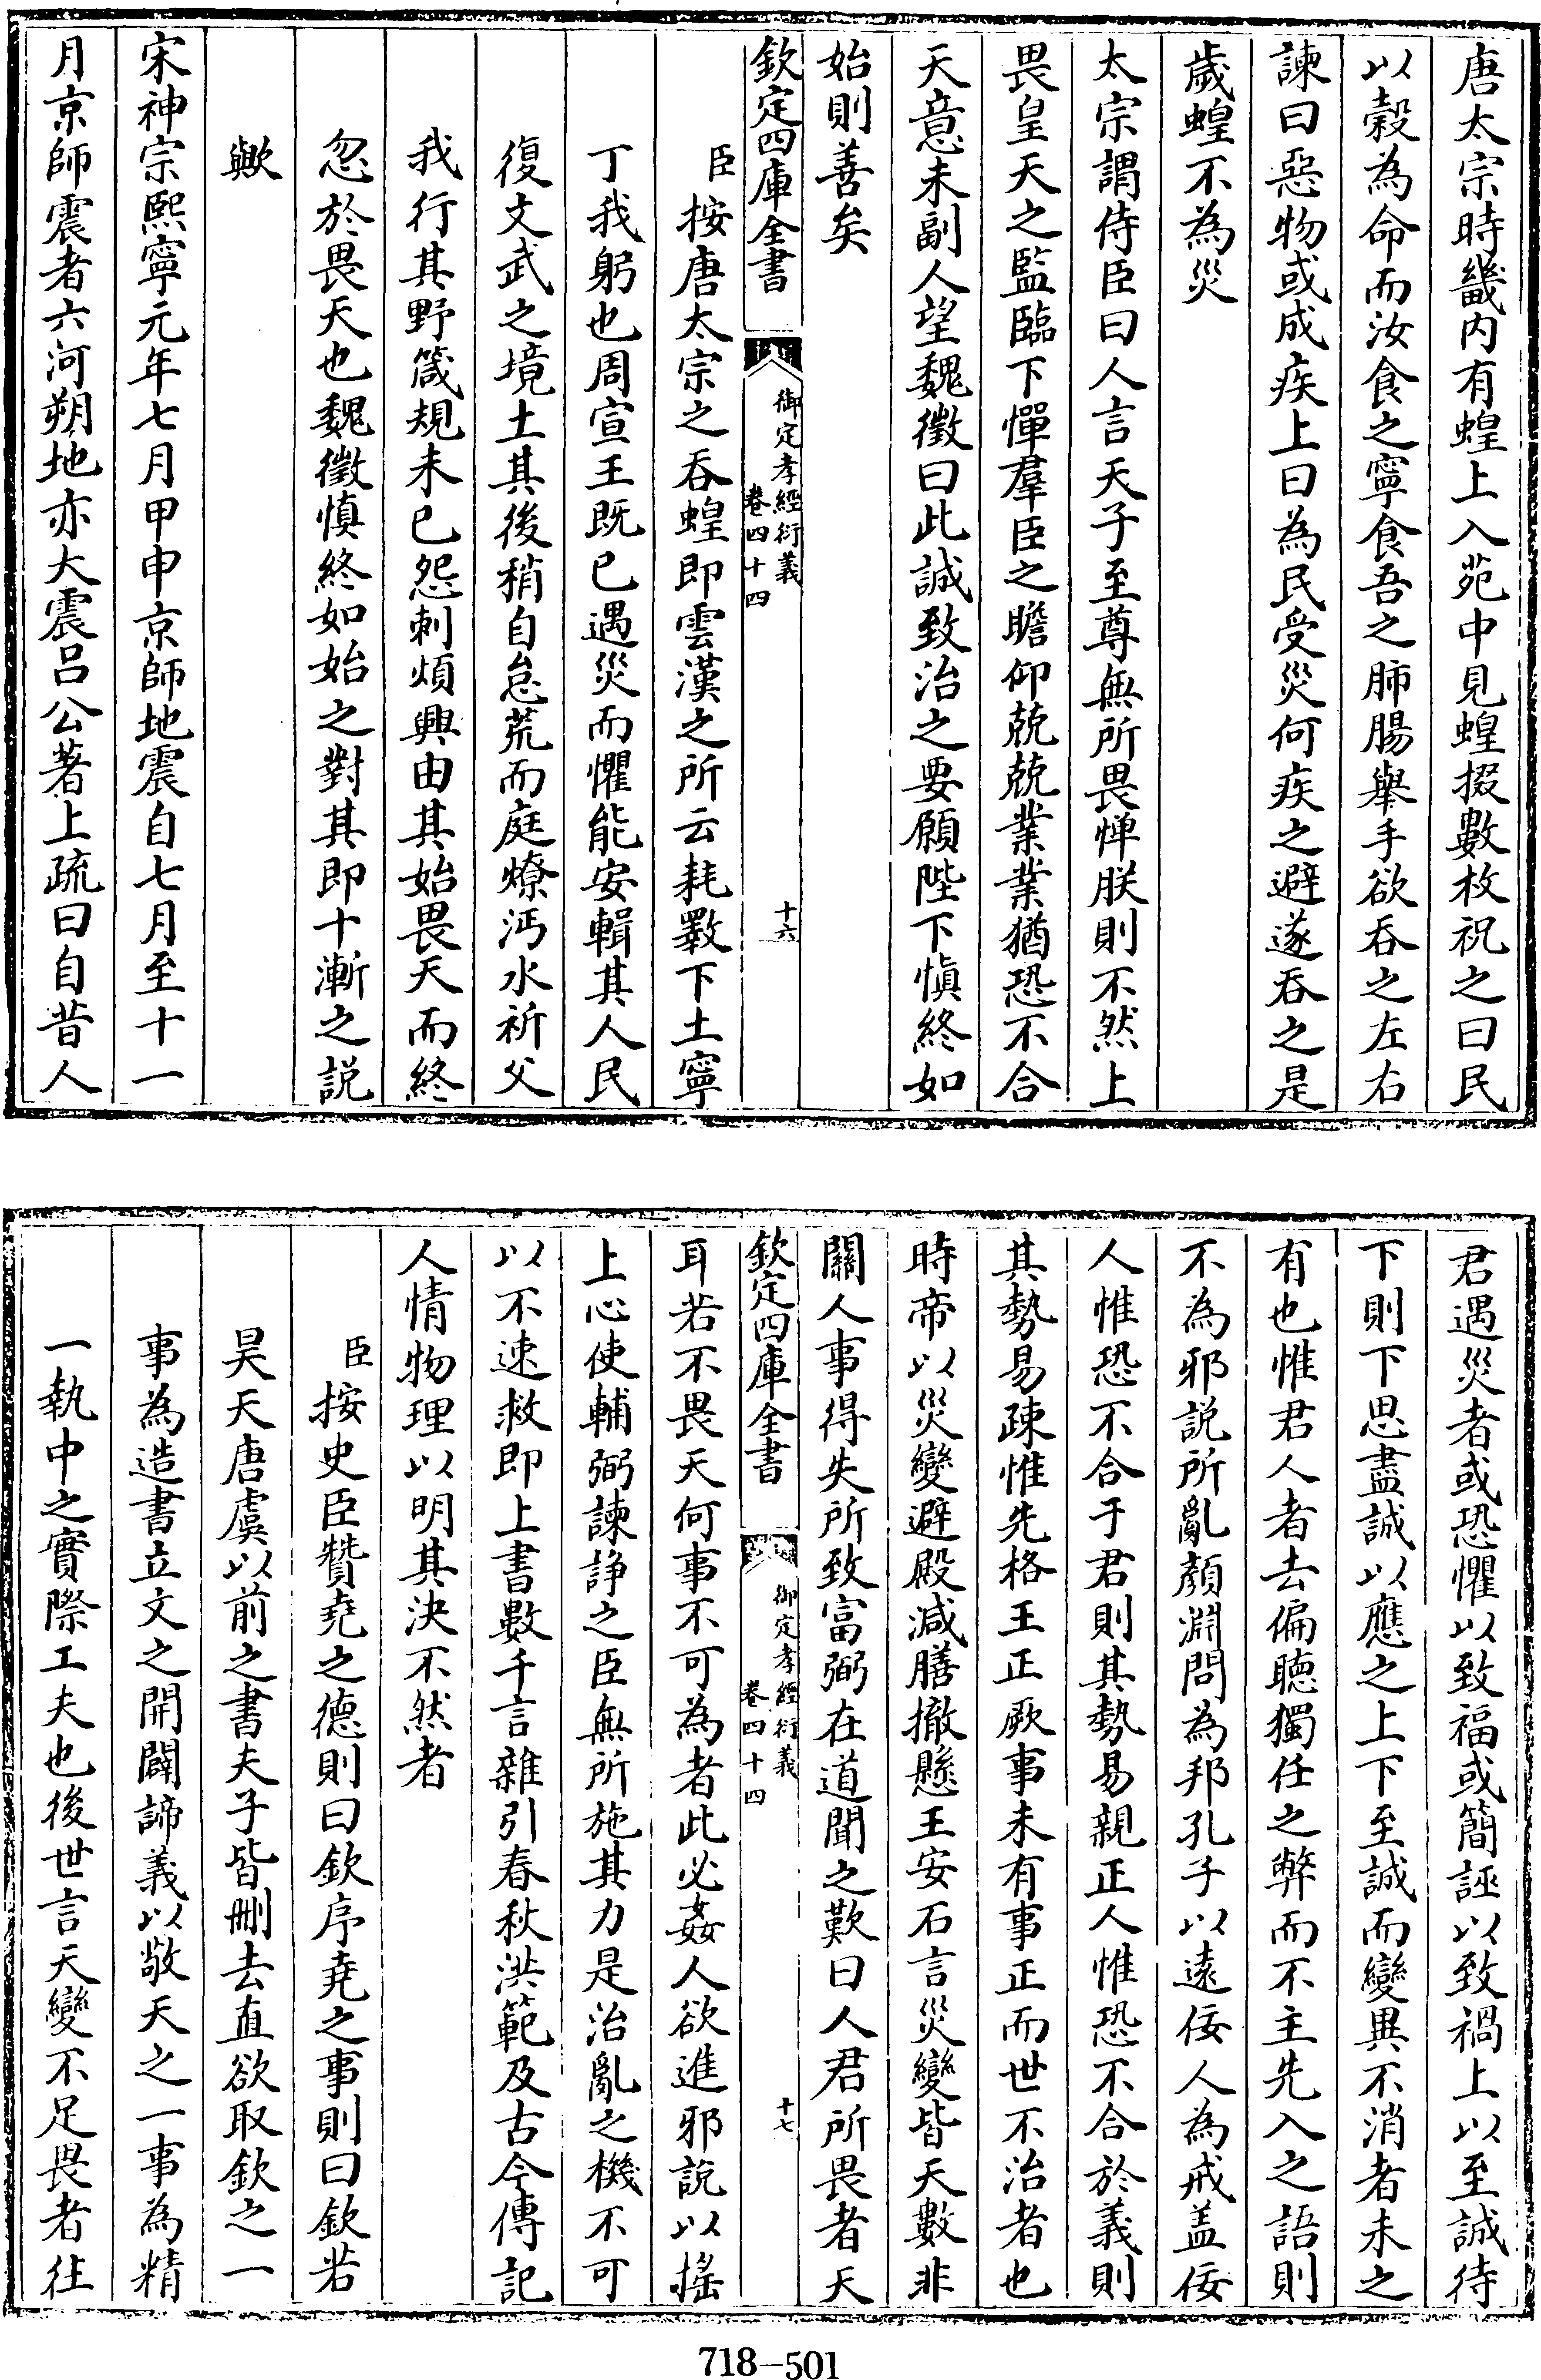 唐太宗時畿内有蝗上入苑中見蝗掇數枚祝之曰民
以穀為命而汝食之寧食吾之肺腸舉手欲吞之左右
諫曰惡物或成疾上曰為民受災何疾之避遂吞之是
歲蝗不為災
太宗謂侍臣曰人言天子至尊無所畏憚朕則不然上
畏皇天之監臨下憚羣臣之瞻仰兢兢業業猶恐不合
天意未副人望魏徵曰此誠致治之要願陛下慎終如
始則善矣
欽定四庫全書
御定孝經衍義
卷四十四
十六
臣按唐太宗之吞蝗即雲漢之所云耗斁下土寧
丁我躬也周宣王既已遇災而懼能安輯其人民
復文武之境土其後稍自怠荒而庭燎沔水祈父
我行其野箴規未已怨刺煩興由其始畏天而終
忽於畏天也魏徵慎終如始之對其即十漸之説
歟
宋神宗熙寧元年七月甲申京師地震自七月至十一
月京師震者六河朔地亦大震吕公著上疏曰自昔人
君遇災者或恐懼以致福或簡誣以致禍上以至誠待
下則下思盡誠以應之上下至誠而變異不消者未之
有也惟君人者去偏聽獨任之弊而不主先入之語則
不為邪説所亂顏淵問為邦孔子以遠佞人為戒盖佞
人惟恐不合于君則其勢易親正人惟恐不合於義則
其勢易疎惟先格王正厥事未有事正而世不治者也
時帝以災變避殿減膳撤懸王安石言災變皆天數非
關人事得失所致富弼在道聞之歎曰人君所畏者天
欽定四庫全書
御定孝經衍義
卷四十四
十七
耳若不畏天何事不可為者此必姦人欲進邪說以搖
上心使輔弼諫諍之臣無所施其力是治亂之機不可
以不速救即上書數千言雜引春秋洪範及古今傳記
人情物理以明其決不然者
臣按史臣贊堯之德則曰欽序堯之事則曰欽若
昊天唐虞以前之書夫子皆刪去直欲取欽之一
事為造書立文之開闢諦義以敬天之一事為精
一執中之實際工夫也後世言天變不足畏者往
718-501